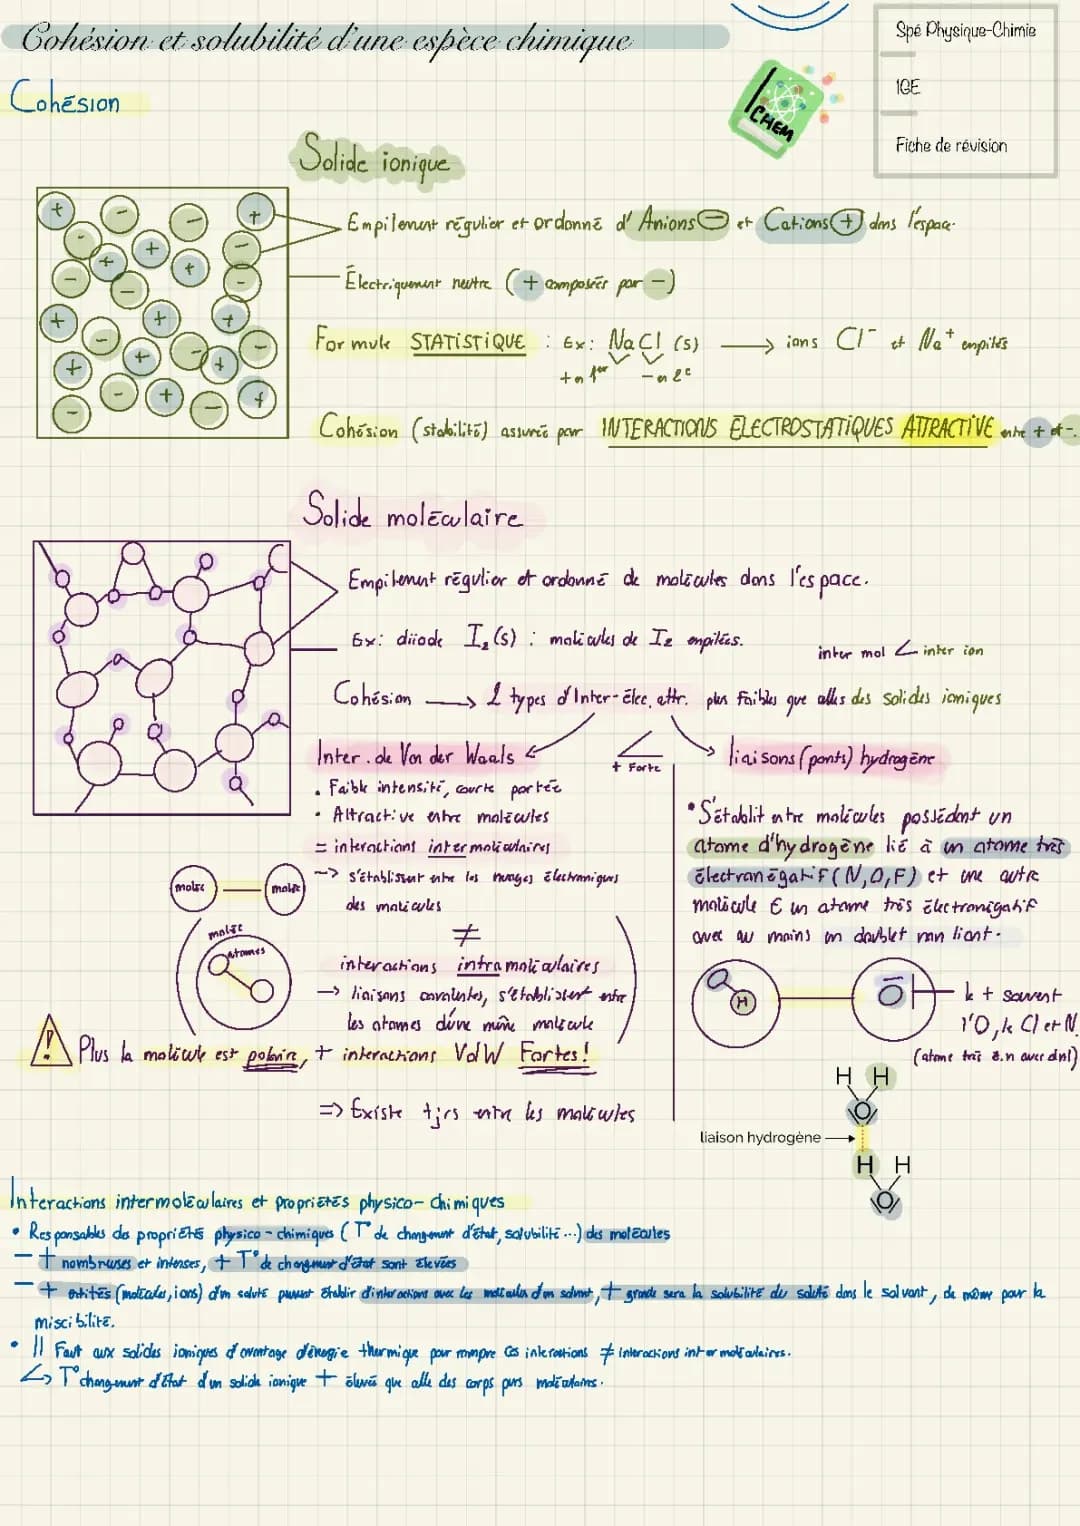 Cohésion et solubilité d'une espèce chimique
Spé Physique-Chimie
1GE
Fiche de révision
CHEM
Cohésion
Solide ionique
Empilement régulier et ordonné d' Anions - et Cations + dans l'espace.
Électriquement neutre ( + composées par - )
Formule STATISTIQUE : Ex : NaCl (s) → ions Cl⁻ et Na⁺ empilés
+ en 1er - en 2e
Cohésion (stabilité) assurée par INTERACTIONS ÉLECTROSTATIQUES ATTRACTIVE entre + et -.
Solide moléculaire
Empilement régulier et ordonné de molécules dans l'espace.
Ex: diiode I₂ (s) : molécules de I₂ empilées.
inter mol < inter ion
Cohésion → 2 types d'Inter-élec. attr. plus faibles que celles des solides ioniques
Inter. de Van der Waals
< + Forte
liaisons (ponts) hydrogène
. Faible intensité, courte portée
. Attractive entre molécules
= interactions intermoléculaires
-> s'établissent entre les nuages électroniques
des molécules
moléc
moléc
moléc
atomes
≠
interactions intramoléculaires
-> liaisons covalentes, s'établissent entre
les atomes d'une même molécule
! Plus la molécule est polaire, + interactions VdW Fortes!
=> Existe tjrs entre les molécules
• S'établit entre molécules possédant un
atome d'hydrogène lié à un atome très
électronégatif (N,O,F) et une autre
molécule € un atome très électronégatif
avec au moins un doublet non liant.
H
O
le + souvent
l'O, le Cl et N.
(atome très é.n avec dnl)
H H
O
liaison hydrogène
H H
O
Interactions intermoléculaires et propriétés physico-chimiques
• Responsables des propriétés physico-chimiques (T° de changement d'état, solubilité ...) des molécules
- + nombreuses et intenses, + T° de changement d'état sont élevées
- + entités (molécules, ions) d'un soluté peuvent établir d'interactions avec les molécules d'un solvant, + grande sera la solubilité du soluté dans le solvant, de même pour la
miscibilité.
• Il faut aux solides ioniques d'avantage d'énergie thermique pour rompre ces interactions ≠ interactions intermoléculaires.
↳ T° changement d'état d'un solide ionique + élevée que celle des corps purs moléculaires.